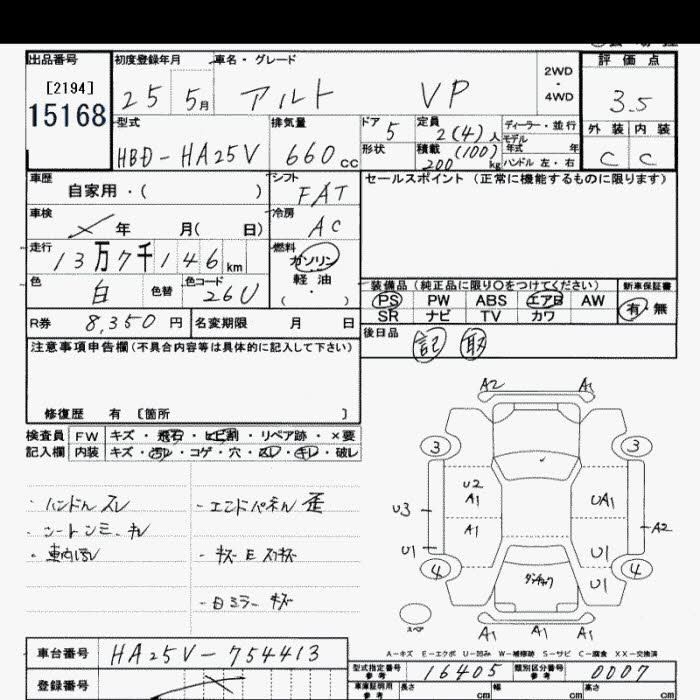 出品番号 初度登録年月 車名・グレード 評価点
[2194]
15168
25 5月 アルト VP 2WD・4WD 3.5
型式 排気量 ドア 5 定員 2(4)人 ディーラー・並行 外装 内装
HBD-HA25V 660cc 形状 積載 (100) 200 kg モデル年式 年 ハンドル 左・右 C C
車歴 自家用・( ) シフト FAT セールスポイント (正常に機能するものに限ります)
車検 年 月( 日) 冷房 AC
走行 13万7千146km 燃料 ガソリン 軽油 (・)
色 白 色替 色コード 26U 装備品 (純正品に限り○をつけてください) 新車保証書
PS PW ABS エアB AW 有・無
R券 8,350円 名変期限 月 日 SR ナビ TV カワ
注意事項申告欄(不具合内容等は具体的に記入して下さい) 後日品 記 取
修復歴 有 [箇所 ]
検査員 FW キズ・飛石・ヒビ割・リペア跡・×要
記入欄 内装 キズ・汚レ・コゲ・穴・スレ・キレ・破レ
A2 A1
3 3
・ハンドルスレ -エンドパネル歪 U2 A1 UA1
U3 A1 A2
・車内汚レ -キズE スリキズ U1 U1
4 4
U1
A1 A1 A1
スペア
A-キズ E-エクボ U-凹み W-補修跡 S-サビ C-腐食 XX-交換済
車台番号 HA25V-754413
型式指定番号 参考 16405 類別区分番号 参考 0007
登録番号 車庫証明用 参考 長さ cm 幅 cm 高さ cm